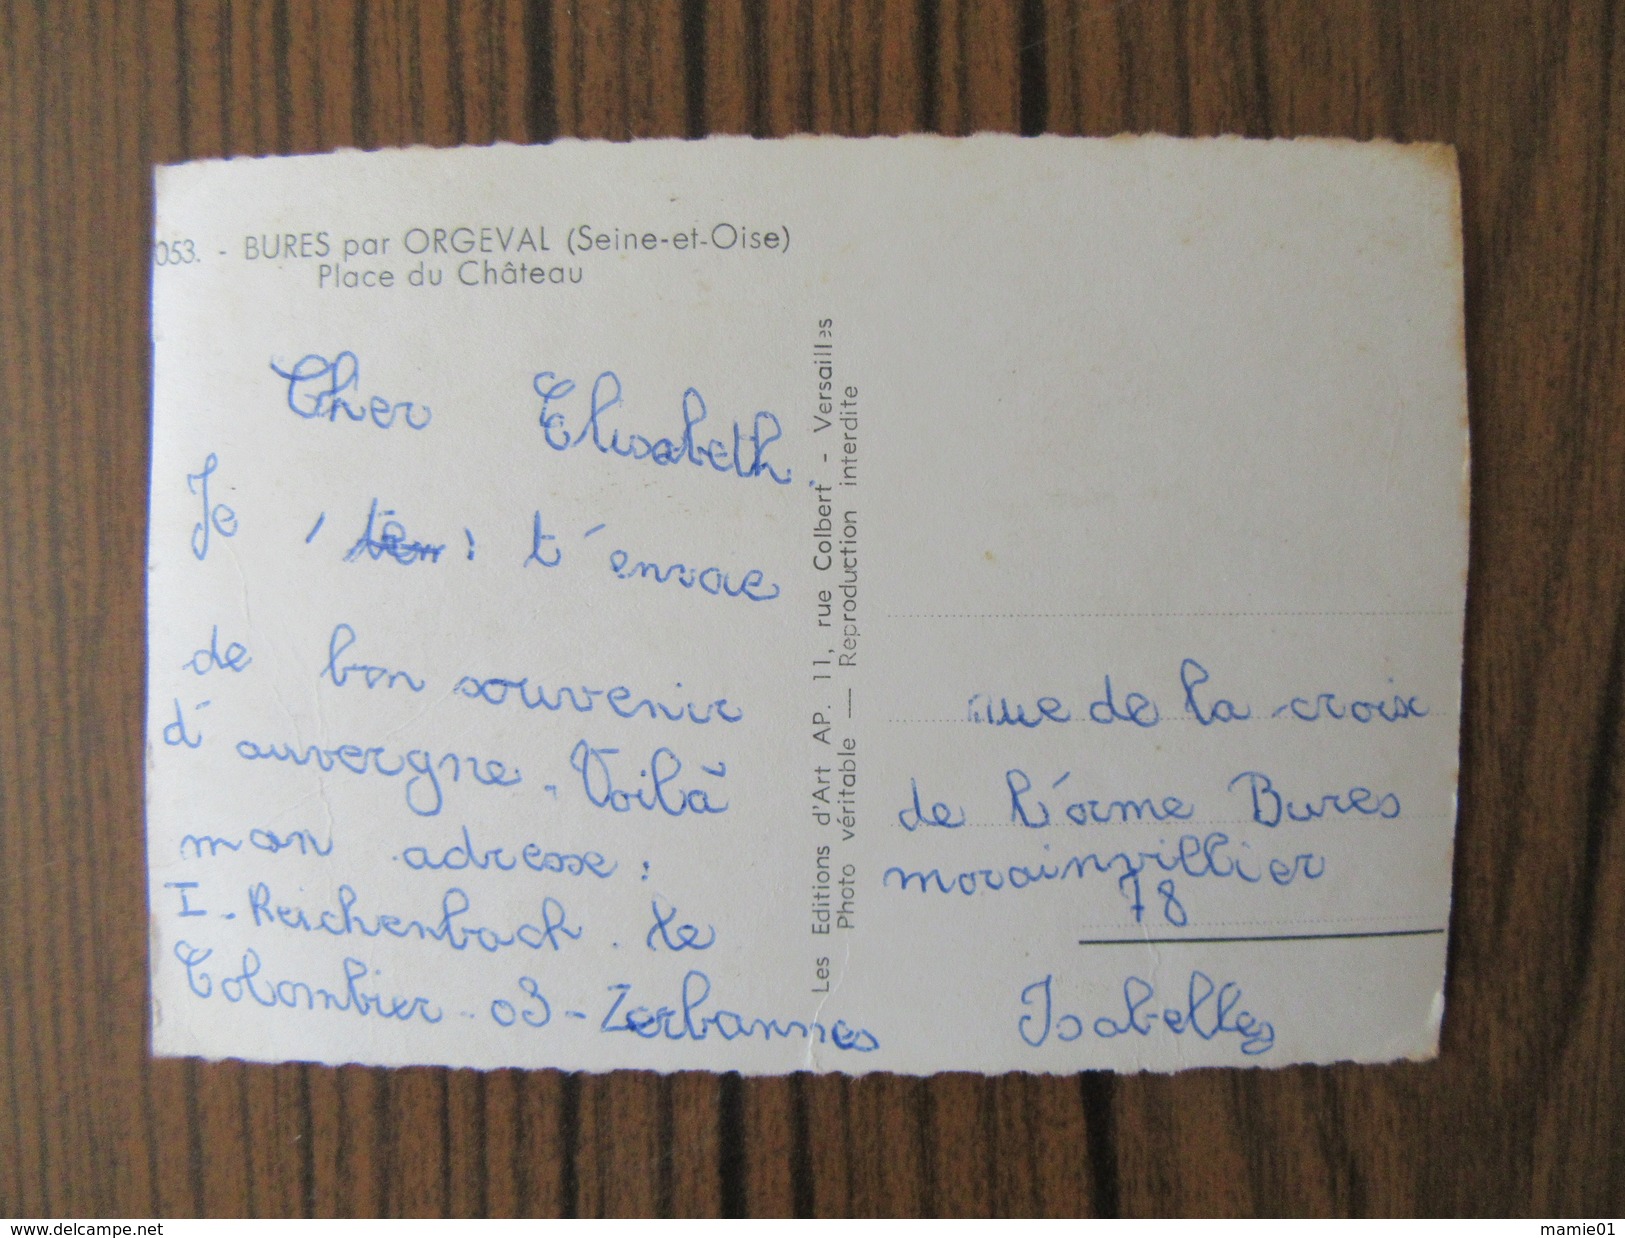 053. - BURES par ORGEVAL (Seine-et-Oise)
Place du Château
Cher Elisabeth.
Je t'envoie
de bon souvenir
d'auvergne. Voilà
mon adresse :
I. Reichenbach. Le
Colombier. 03 - Zerbannes
Les Editions d'Art AP. 11, rue Colbert - Versailles
Photo véritable — Reproduction interdite
rue de la croix
de l'orme Bures
morainvillier
78
Isabelles
www.delcampe.net
mamie01